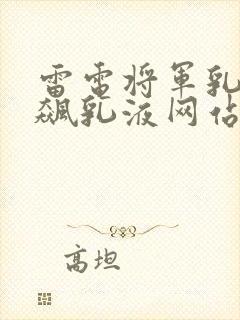 雷电将军乳
飙乳液网站
高坦